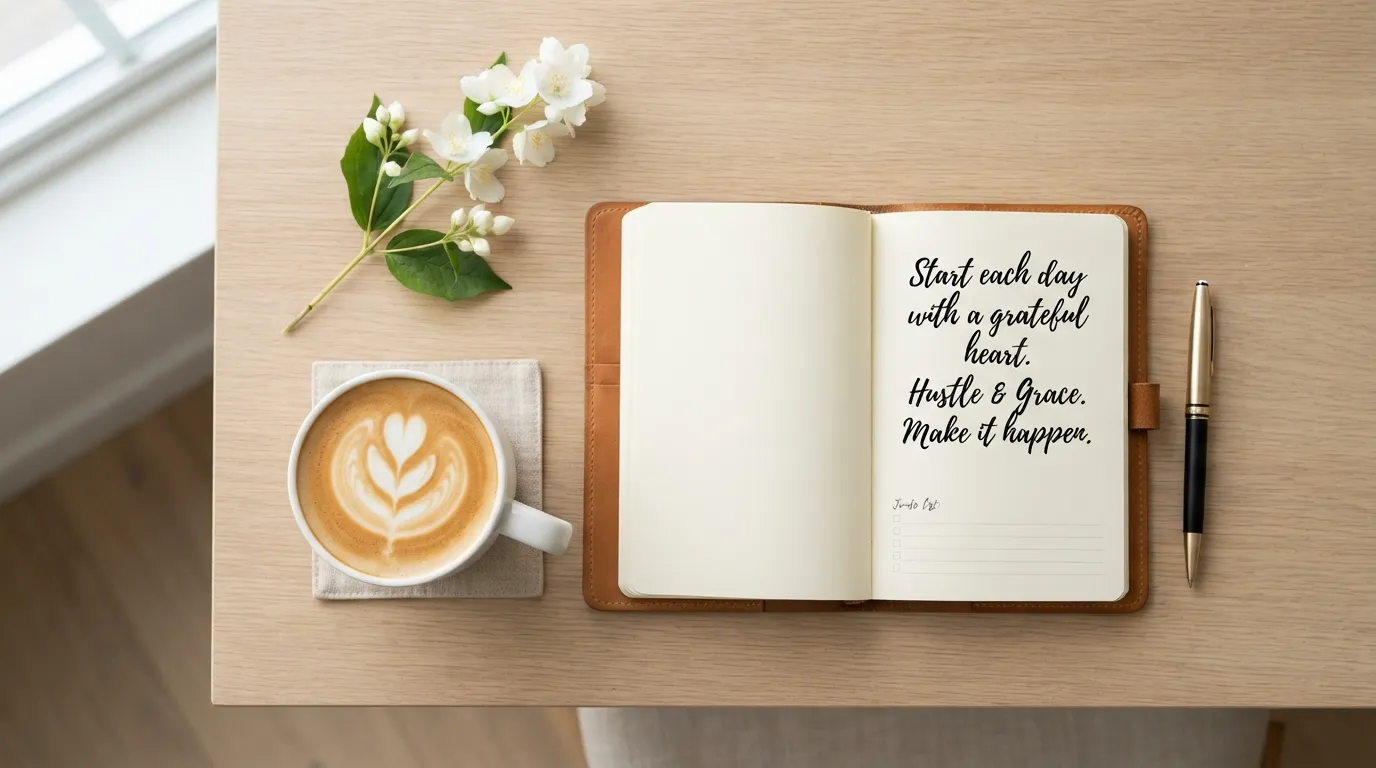 Start each day
with a grateful
heart.
Hustle & Grace.
Make it happen.